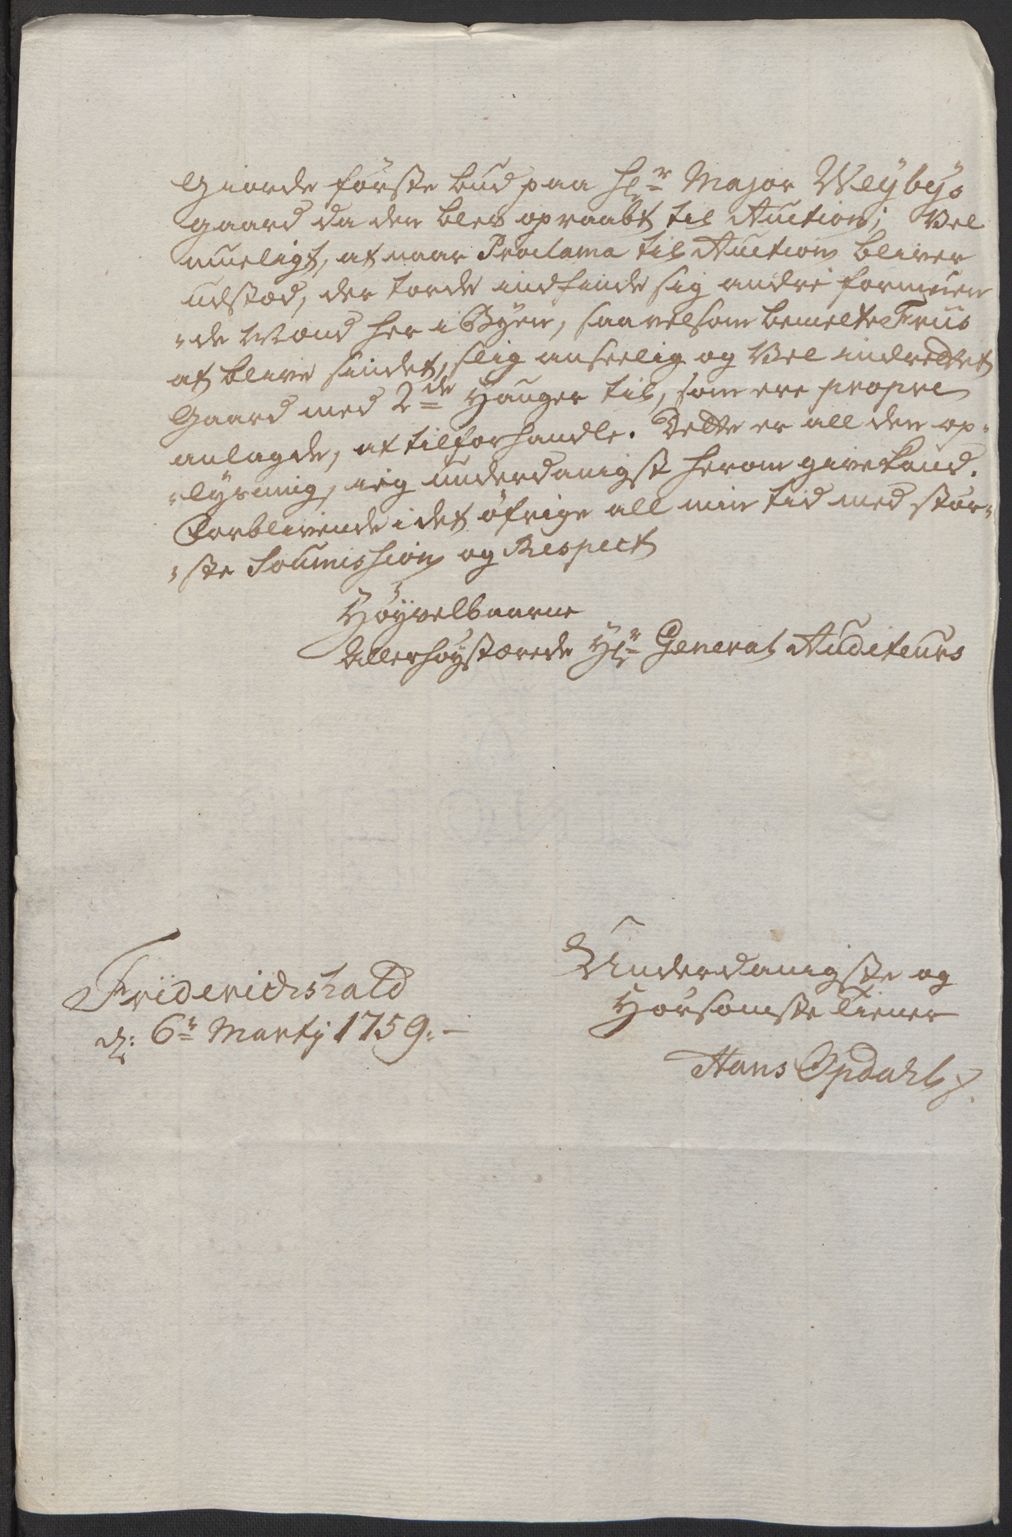 Giorde første bud paa Hr Major Weybys
gaard da den blev opraabt til Auction; Vel
mueligt, at naar Proclama til Auction bliver
udstæd, der torde indfinde sig andre formuen
-de Mænd her i Byen, saavelsom bemelte Frue
at blive sindet, slig anseelig og Vel indrettet
Gaard med 2de Hauger til, som ere propre
anlagde, at tilforhandle. Dette er all den op-
-lysning, ieg underdanigst herom give kand.
Forblivende i det øfrige all min tid med stør-
-ste Soumission og Respect
Høyvelbaarne
Allerhøystærede Hr General Auditeurs
Friderichshald
d: 6te Martij 1759.-
Underdanigste og
Hørsomste Tiener
Hans Opdahl